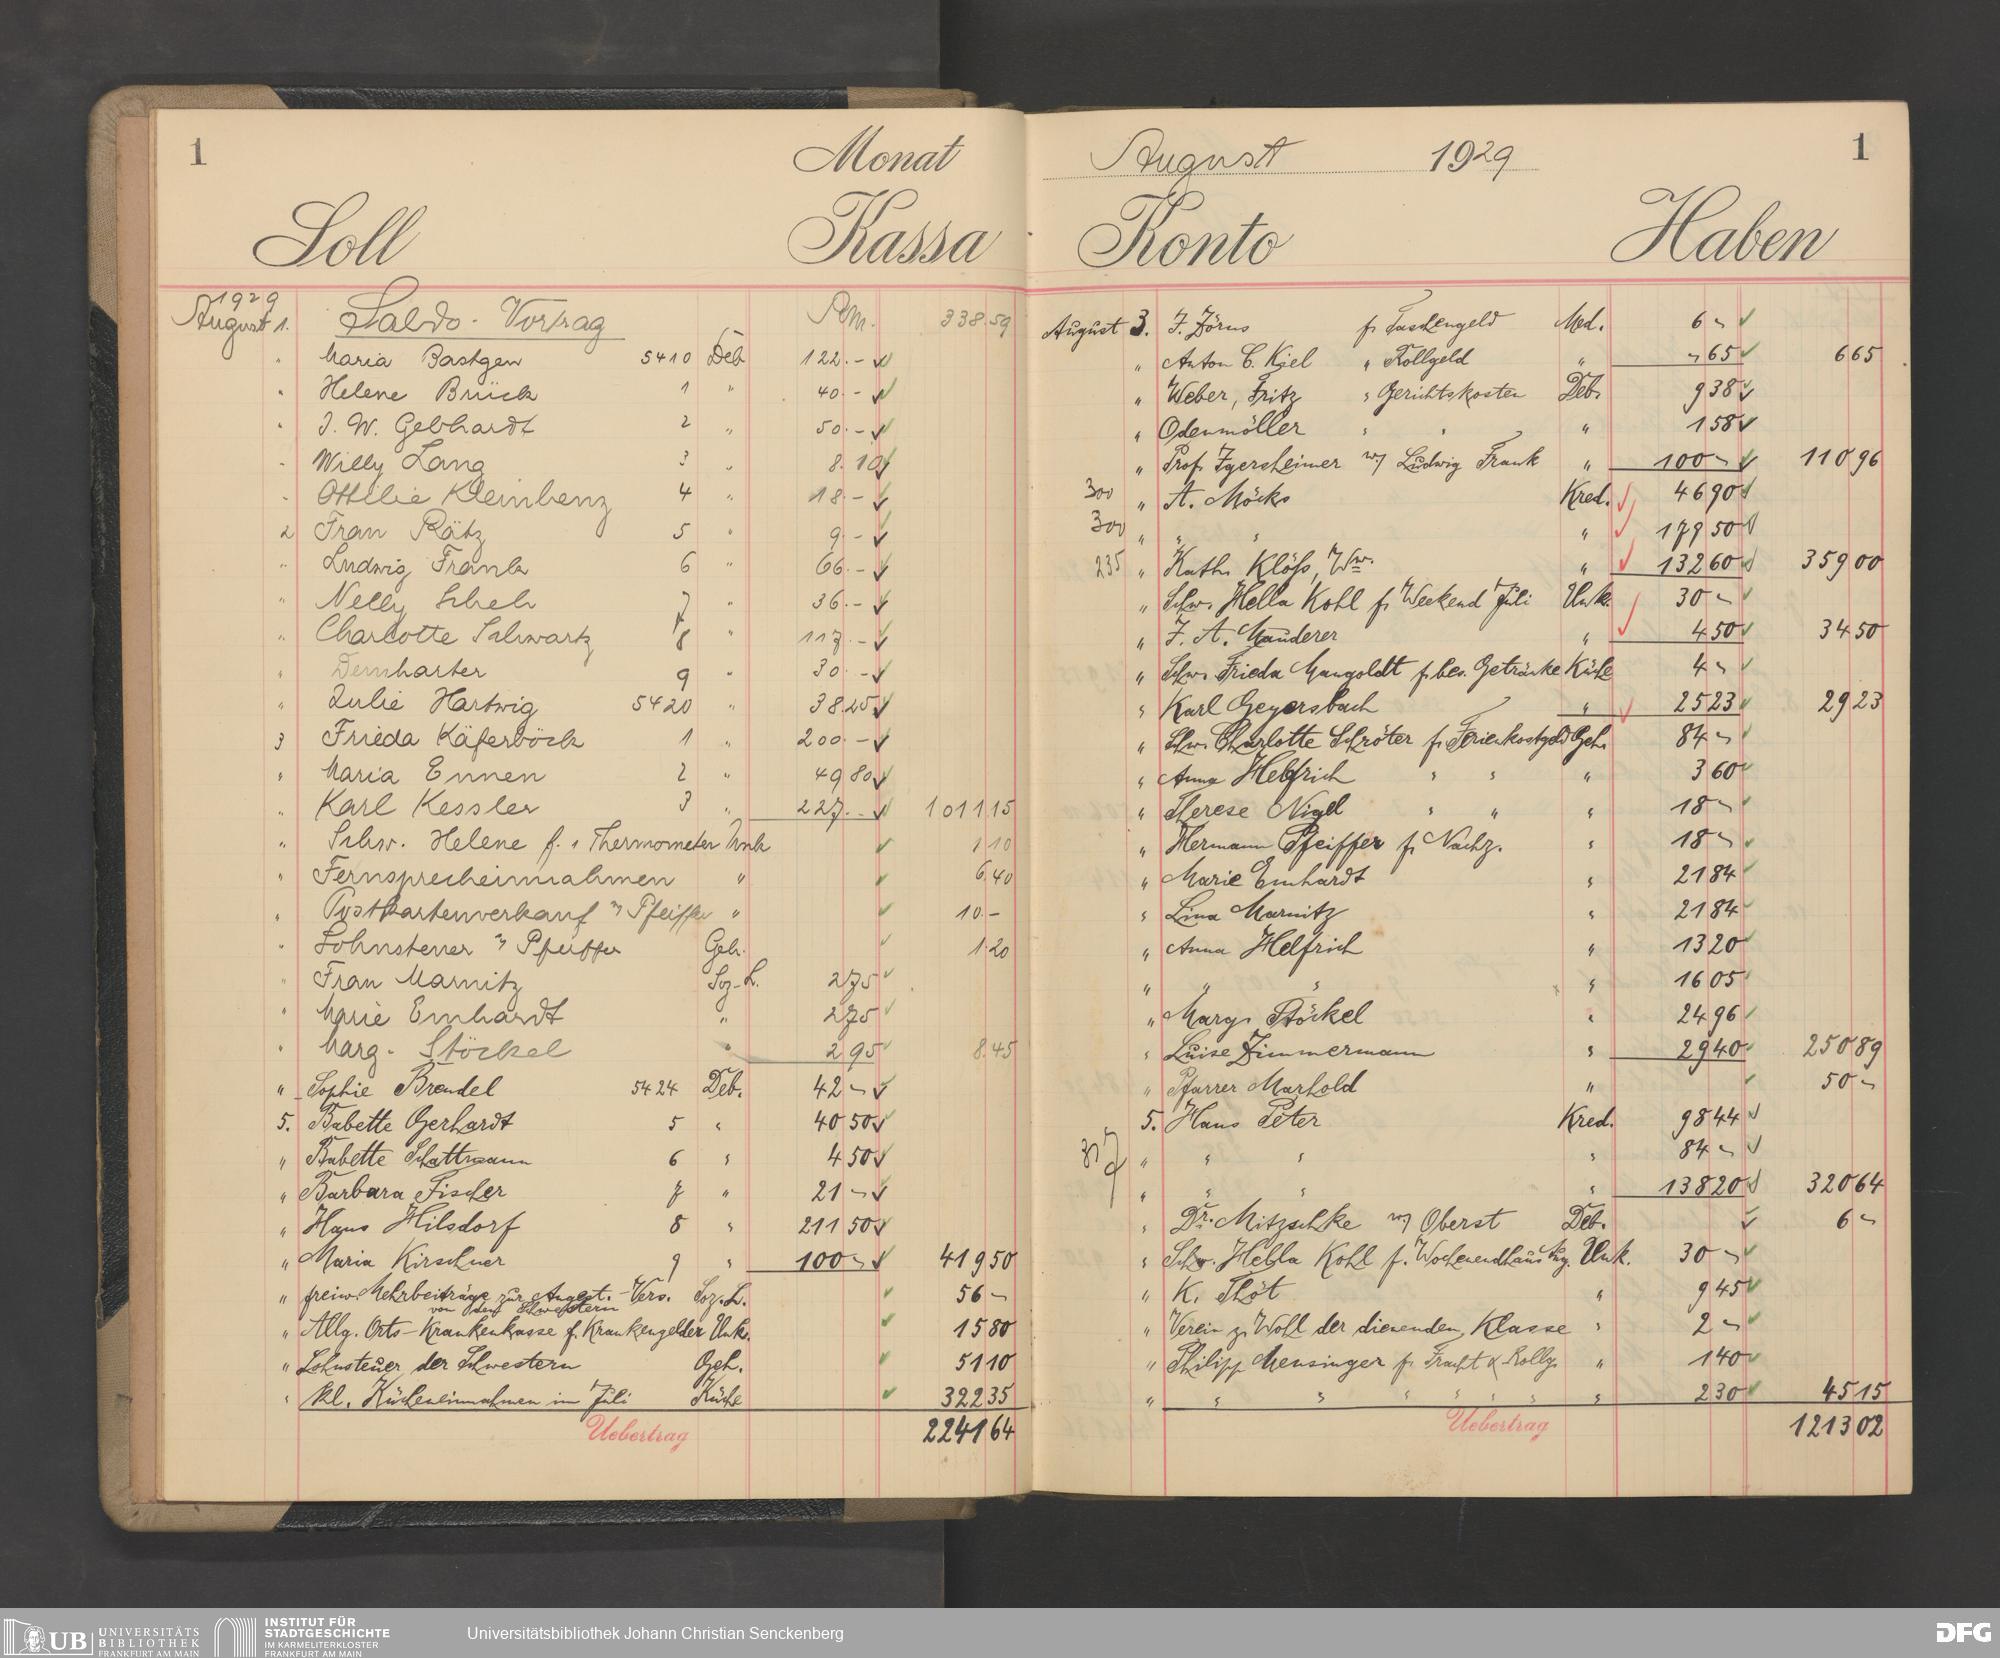 1
Monat
Soll
Kassa
1929
August 1. Saldo-Vortrag Rm. 338.59
" Maria Bastgen 5410 Deb 122.-
" Helene Brück 1 " 40.-
" J. W. Gebhardt 2 " 50.-
" Willy Lang 3 " 8.10
" Ottilie Kleinbenz 4 " 18.-
2 Frau Rätz 5 " 9.-
" Ludwig Frank 6 " 66.-
" Nelly 7 " 36.-
" Charlotte Schwartz 8 " 117.-
" Demharter 9 " 30.-
" Julie Hartwig 5420 " 38.25
3 Frieda Käferböck 1 " 200.-
" Maria Ennen 2 " 49 80
" Karl Kessler 3 " 227.- 1011 15
" Schw. Helene f. 1 Thermometer Unk 1 10
" Fernsprecheinnahmen " 6.40
" Postkartenverkauf Pfeiffer " 10.-
" Lohnsteuer Pfeiffer Geh. 1.20
" Frau Marnitz Soz-L. 2 75
" Marie Emhardt " 2 75
" Marg. Stöckel " 2 95 8.45
" Sophie Brendel 5424 Deb. 42 -
5. Babette Gerhardt 5 " 40 50
" Babette Schattmann 6 " 4 50
" Barbara Fischer 7 " 21 -
" Hans Hilsdorf 8 " 211 50
" Maria Kirschner 9 " 100 - 419 50
" freiw. Mehrbeiträge zur Angest.-Vers. Soz.L. 56 -
von den Schwestern
" Allg. Orts-Krankenkasse f. Krankengelder Unk. 15 80
" Lohnsteuer der Schwestern Geh. 51 10
" kl. Kücheneinnahmen im Juli Küche 322 35
Uebertrag 2241 64
August 1929
1
Konto
Haben
August 3. J. Dörns f. Taschengeld Med. 6 -
" Anton C. Kiel " Rollgeld " - 65 6 65
" Weber, Fritz " Gerichtskosten Deb. 9 38
" Odenmöller " " " 1 58
" Prof. Igersheimer w/ Ludwig Frank " 100 - 110 96
300 " A. Möcks Kred. 46 90
300 " " " " 179 50
235 " Kath. Klöss, Ww. " 132 60 359 00
" Schw. Hella Kohl f. Weekend Juli Unk. 30 -
" F. A. Mauderer " 4 50 34 50
" Schw. Frieda Mangoldt f. bes. Getränke Küche 4 -
" Karl Geyersbach " 25 23 29 23
" Schw. Charlotte Schröter f. Ferienkostgeld Geh. 84 -
" Anna Helfrich " " " 3 60
" Therese Nigel " " " 18 -
" Hermann Pfeiffer f. Nachz. " 18 -
" Marie Emhardt " 21 84
" Lina Marnitz " 21 84
" Anna Helfrich " 13 20
" " " " 16 05
" Marg. Stöckel " 24 96
" Luise Zimmermann " 29 40 250 89
" Pfarrer Marhold " 50 -
5. Hans Peter Kred. 98 44
" " " " 84 -
" " " " 138 20 320 64
" Dr. Mitzschke w/ Oberst Deb. 6 -
" Schw. Hella Kohl f. Wochenendhaus Aug. Unk. 30 -
" K. Thöt " 9 45
" Verein z. Wohl der dienenden Klasse " 2 -
" Philipp Mensinger f. Fracht & Rollg. " 1 40
" " " " " " " " 2 30 45 15
Uebertrag 1213 02
UB UNIVERSITÄTS
BIBLIOTHEK
FRANKFURT AM MAIN
INSTITUT FÜR
STADTGESCHICHTE
IM KARMELITERKLOSTER
FRANKFURT AM MAIN
Universitätsbibliothek Johann Christian Senckenberg
DFG